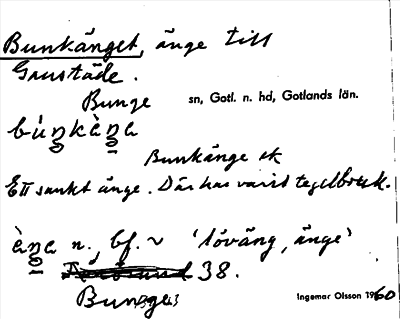 Bunkänget, änge till
Grustäde.
Bunge sn, Gotl. n. hd, Gotlands län.
bùŋkàŋa
Bunkänge sk
Ett sankt änge. Där has varit tegelbruk.
àŋa n., bf. ~ 'löväng, änge'
38.
Bunge
Ingemar Olsson 1960